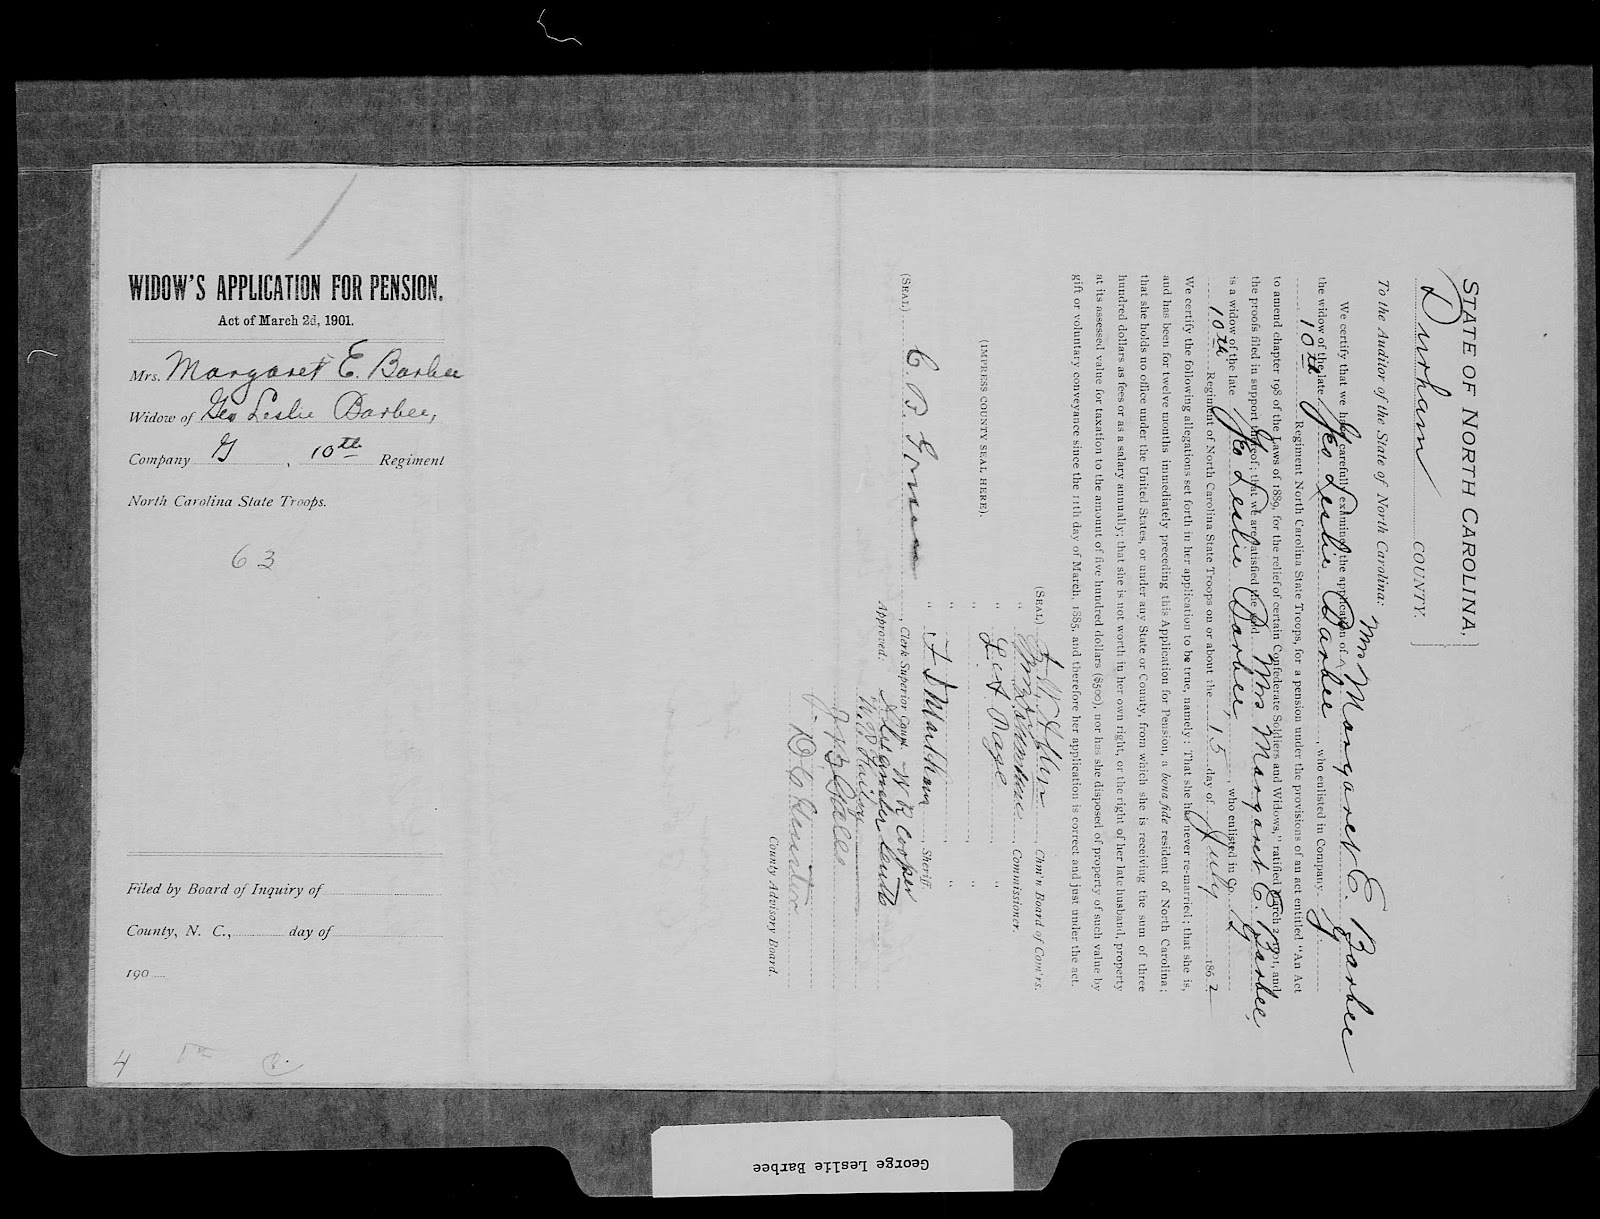 WIDOW'S APPLICATION FOR PENSION.
Act of March 2d, 1901.
Mrs. Margaret E. Barbee
Widow of Geo Leslie Barbee,
Company G, 10th Regiment
North Carolina State Troops.
63
Filed by Board of Inquiry of
County, N. C., day of
190
4
STATE OF NORTH CAROLINA,
Durham COUNTY.
To the Auditor of the State of North Carolina:
We certify that we have carefully examined the application of Mrs Margaret E. Barbee
the widow of the late Geo Leslie Barbee, who enlisted in Company G
10th Regiment North Carolina State Troops, for a pension under the provisions of an act entitled "An Act
to amend chapter 198 of the Laws of 1889, for the relief of certain Confederate Soldiers and Widows," ratified March 2, 1901, and
the proofs filed in support thereof; that we are satisfied the said Mrs Margaret E. Barbee,
is a widow of the late Geo Leslie Barbee, who enlisted in Co. G
10th Regiment of North Carolina State Troops on or about the 15 day of July 1862
We certify the following allegations set forth in her application to be true, namely: That she has never re-married; that she is,
and has been for twelve months immediately preceding this Application for Pension, a bona fide resident of North Carolina;
that she holds no office under the United States, or under any State or County, from which she is receiving the sum of three
hundred dollars as fees or as a salary annually; that she is not worth in her own right, or the right of her late husband, property
at its assessed value for taxation to the amount of five hundred dollars ($500), nor has she disposed of property of such value by
gift or voluntary conveyance since the 11th day of March, 1885, and therefore her application is correct and just under the act.
(SEAL) Chm'n Board of Com'rs.
" Commissioner.
" Page "
" "
(IMPRESS COUNTY SEAL HERE).
" F D Markham, Sheriff.
(SEAL) C. B. Green, Clerk Superior Court.
W R Cooper
Approved:
County Advisory Board.
George Leslie Barbee